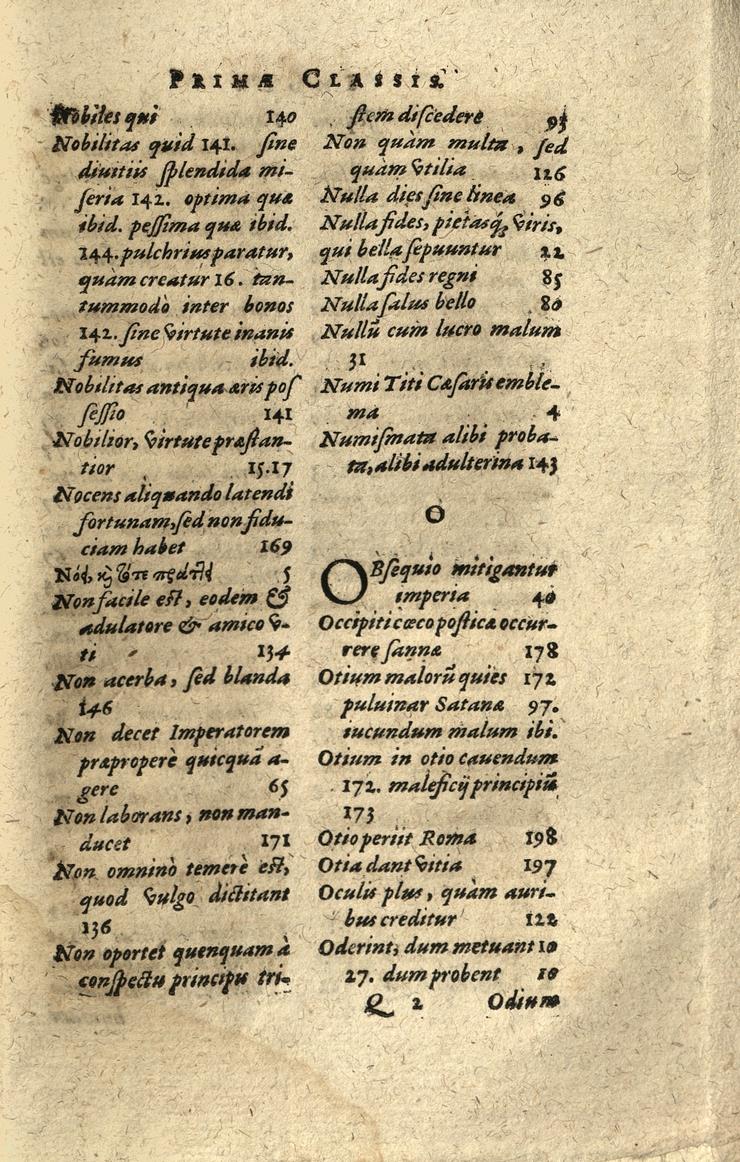 PRIMÆ CLASSIS.
Nobiles qui 140
Nobilitas quid 141. ſine
diuitiis ſplendida mi-
ſeria 142. optima quæ
ibid. peſſima quæ ibid.
144. pulchrius paratur,
quàm creatur 16. tan-
tummodò inter bonos
142. ſine virtute inanis
fumus ibid.
Nobilitas antiqua æris poſ
ſeſſio 141
Nobilior, virtute præſtan-
tior 15.17
Nocens aliquando latendi
fortunam, ſed non fidu-
ciam habet 169
5
Non facile eſt, eodem &
adulatore & amico v-
ti 134
Non acerba, ſed blanda
146
Non decet Imperatorem
præproperè quicquã a-
gere 65
Non laborans, non man-
ducet 171
Non omninò temerè eſt,
quod vulgo dictitant
136
Non oportet quenquam à
conſpectu principis tri-
ſtem diſcedere 93
Non quàm multa, ſed
quàm vtilia 126
Nulla dies ſine linea 96
Nulla fides, pietasq́; viris,
qui bella ſepuuntur 22
Nulla fides regni 85
Nulla ſalus bello 80
Nullũ cum lucro malum
31
Numi Titi Cæſaris emble-
ma 4
Numiſmata alibi proba-
ta, alibi adulterina 143
O
OBſequio mitigantur
imperia 40
Occipiti cæco poſticæ occur-
rere ſannæ 178
Otium malorũ quies 172
puluinar Satanæ 97.
iucundum malum ibi.
Otium in otio cauendum
172. maleficij principiũ
173
Otio periit Roma 198
Otia dant vitia 197
Oculis plus, quàm auri-
bus creditur 122
Oderint, dum metuant 10
27. dum probent 10
Q 2 Odium